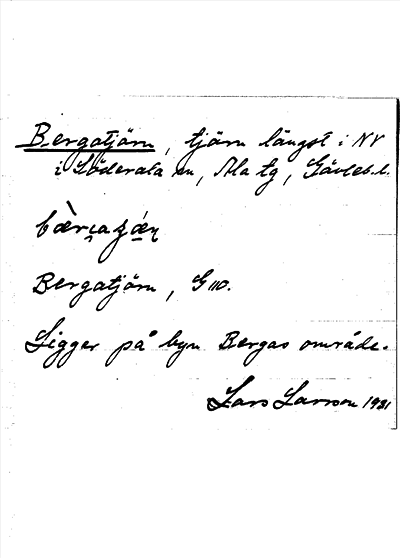 Bergatjärn, tjärn längst i NV
i Söderala sn, Ala tg, Gävleb. l.
Bergatjärn, G 110.
Ligger på byn Bergas område.
Lars Larsson 1931